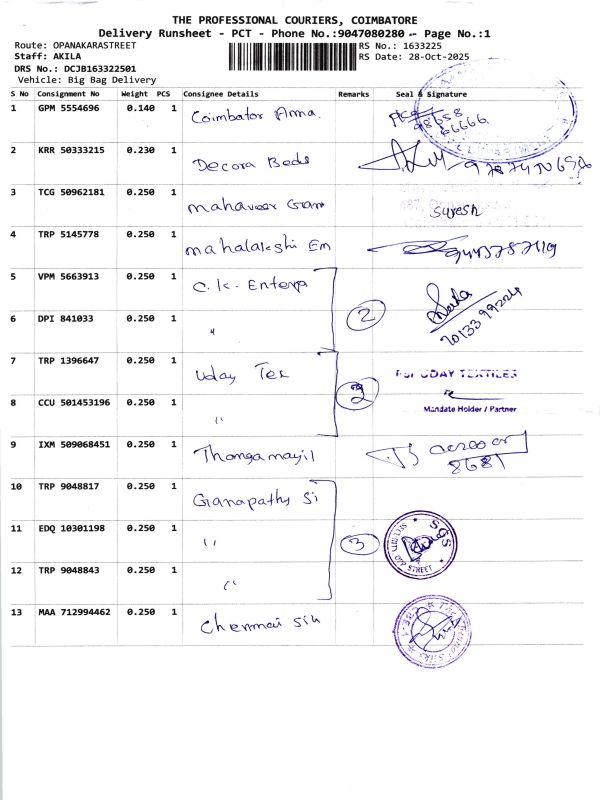 THE PROFESSIONAL COURIERS, COIMBATORE
Delivery Runsheet - PCT - Phone No.:9047080280 - Page No.:1
Route: OPANAKARASTREET RS No.: 1633225
Staff: AKILA RS Date: 28-Oct-2025
DRS No.: DCJB163322501
Vehicle: Big Bag Delivery
S No Consignment No Weight PCS Consignee Details Remarks Seal & Signature
1 GPM 5554696 0.140 1 Coimbator Anna.
98658
66666
2 KRR 50333215 0.230 1 Decora Beds
3 TCG 50962181 0.250 1 mahaveer Gran Suresh
4 TRP 5145778 0.250 1 mahalakshi Em
5 VPM 5663913 0.250 1 C.K. Enterp
6 DPI 841033 0.250 1 " 2
7 TRP 1396647 0.250 1 Uday Tex UDAY TEXTILES
8 CCU 501453196 0.250 1 " 2 Mandate Holder / Partner
9 IXM 509068451 0.250 1 Thangamayil
8681
10 TRP 9048817 0.250 1 Ganapathy Si
11 EDQ 10301198 0.250 1 " 3 SGS
12 TRP 9048843 0.250 1 " STREET
13 MAA 712994462 0.250 1 Chennai Silk